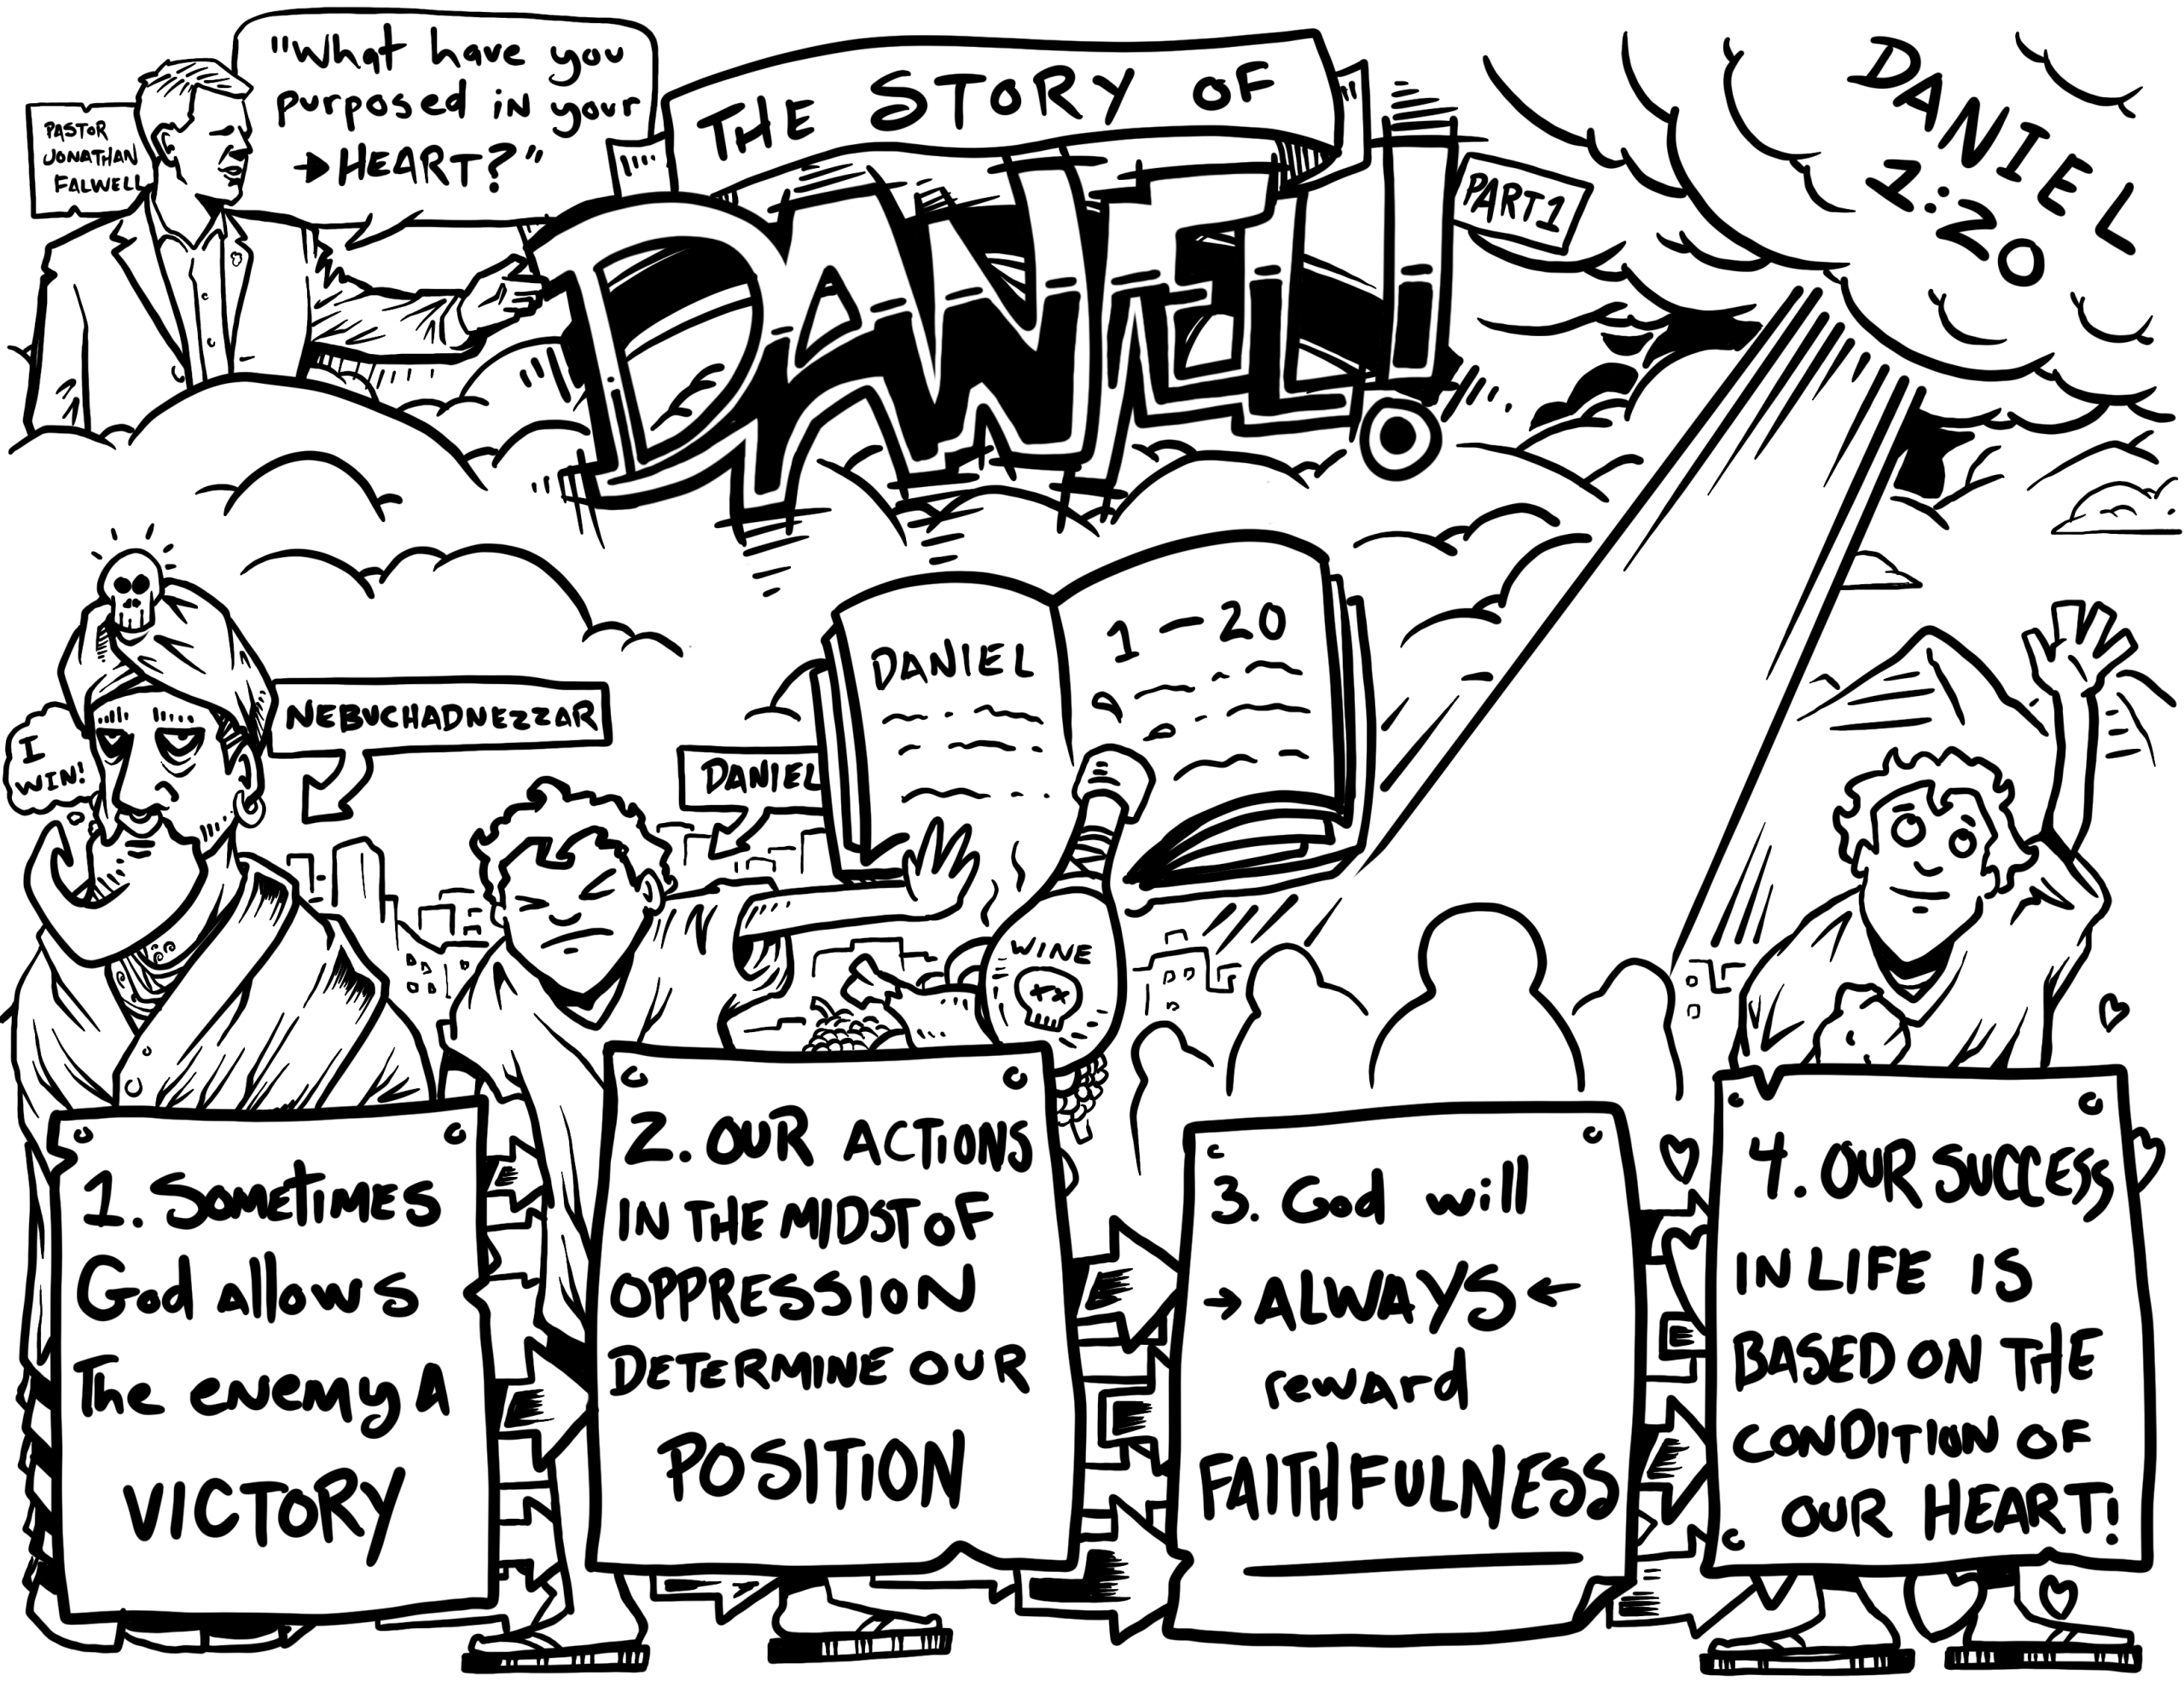 "What have you
purposed in your
→HEART?"
PASTOR
JONATHAN
FALWELL
THE STORY OF
DANIEL!
PART 1
DANIEL
1:20
DANIEL
1-20
NEBUCHADNEZZAR
I
WIN!
DANIEL
WINE
1. SOMETIMES
God allows
The enemy A
VICTORY
2. OUR ACTIONS
IN THE MIDST OF
OPPRESSION
DETERMINE OUR
POSITION
3. God will
→ALWAYS←
reward
FAITHFULNESS
4. OUR SUCCESS
IN LIFE IS
BASED ON THE
CONDITION OF
OUR HEART!